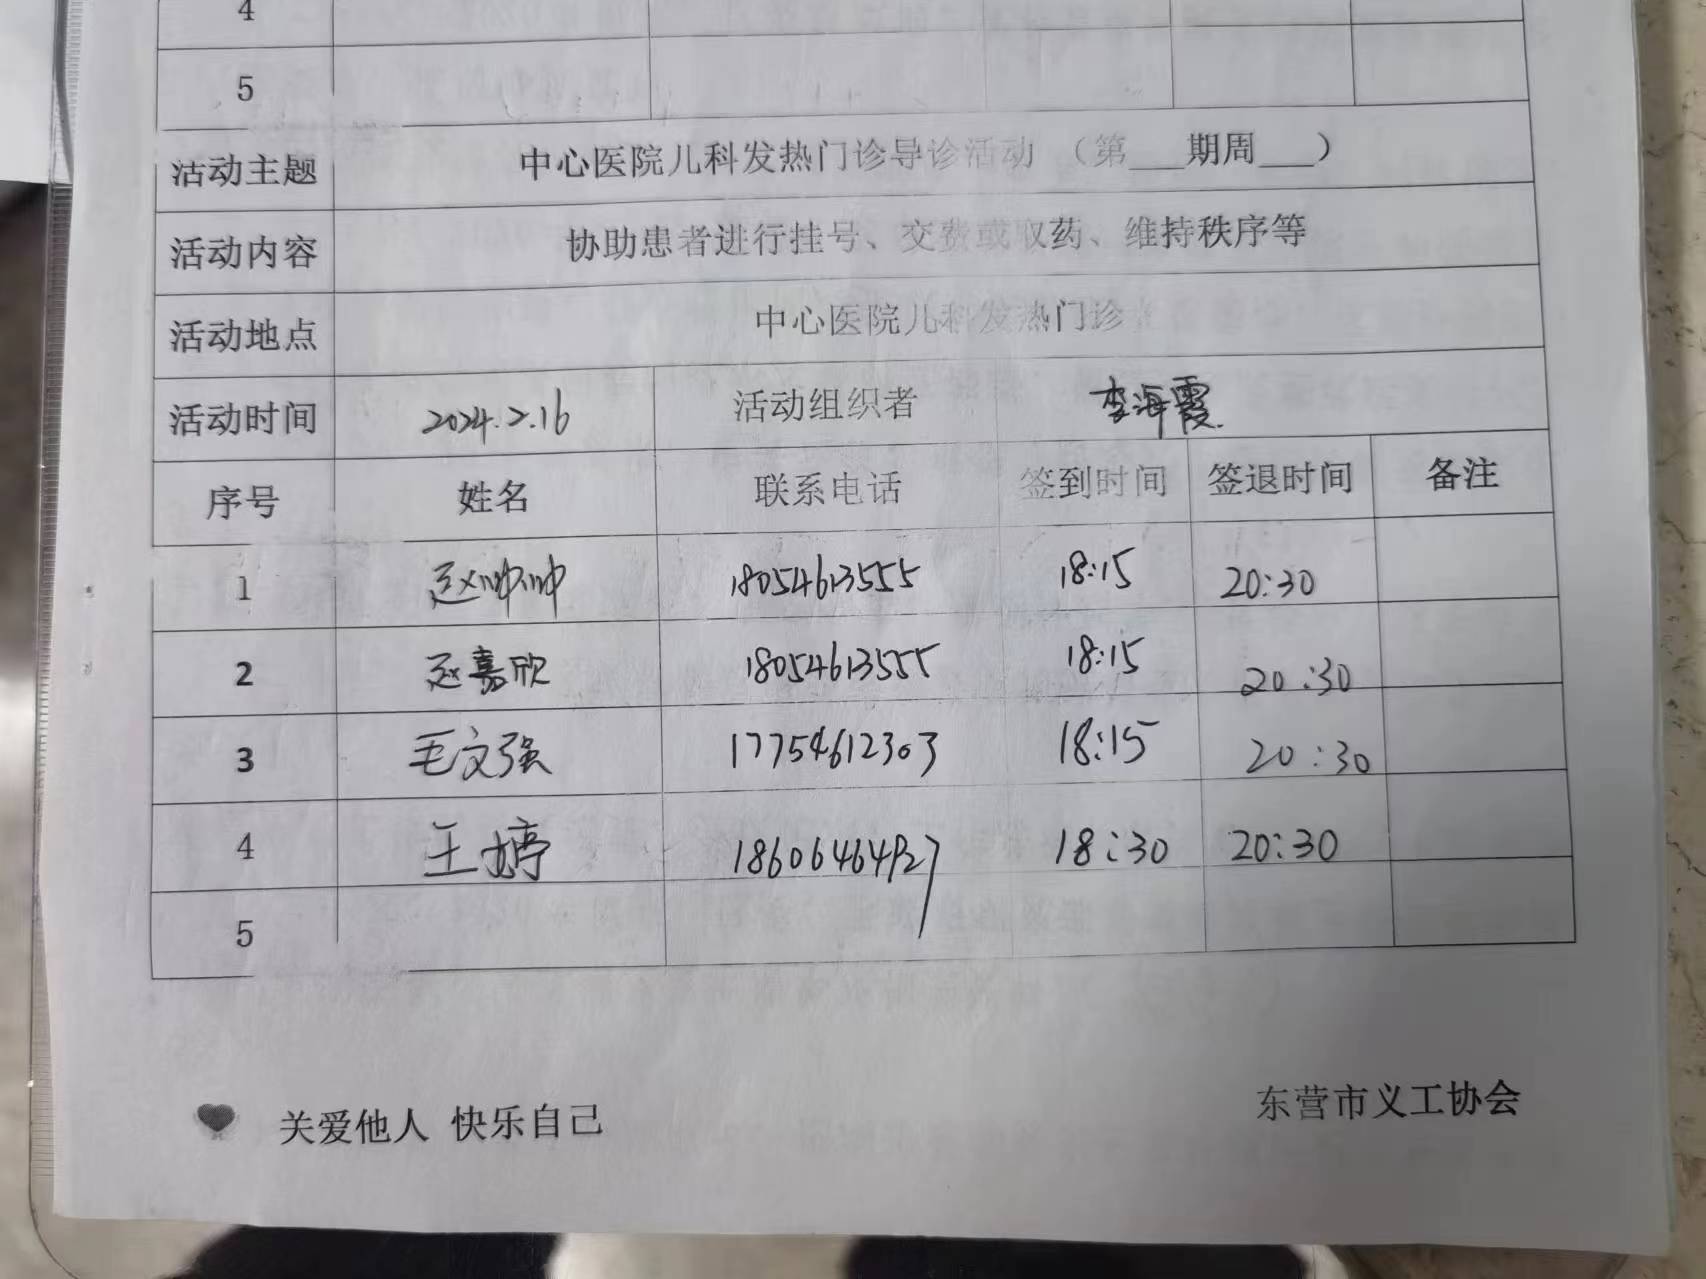 4
5
活动主题 中心医院儿科发热门诊导诊活动 （第___期周___）
活动内容 协助患者进行挂号、交费或取药、维持秩序等
活动地点 中心医院儿科发热门诊
活动时间 2024.2.16 活动组织者 李海霞
序号 姓名 联系电话 签到时间 签退时间 备注
1 赵帅帅 18054613555 18:15 20:30
2 赵嘉欣 18054613555 18:15 20:30
3 毛文强 17754612303 18:15 20:30
4 王婷 18606464927 18:30 20:30
5
关爱他人 快乐自己
东营市义工协会